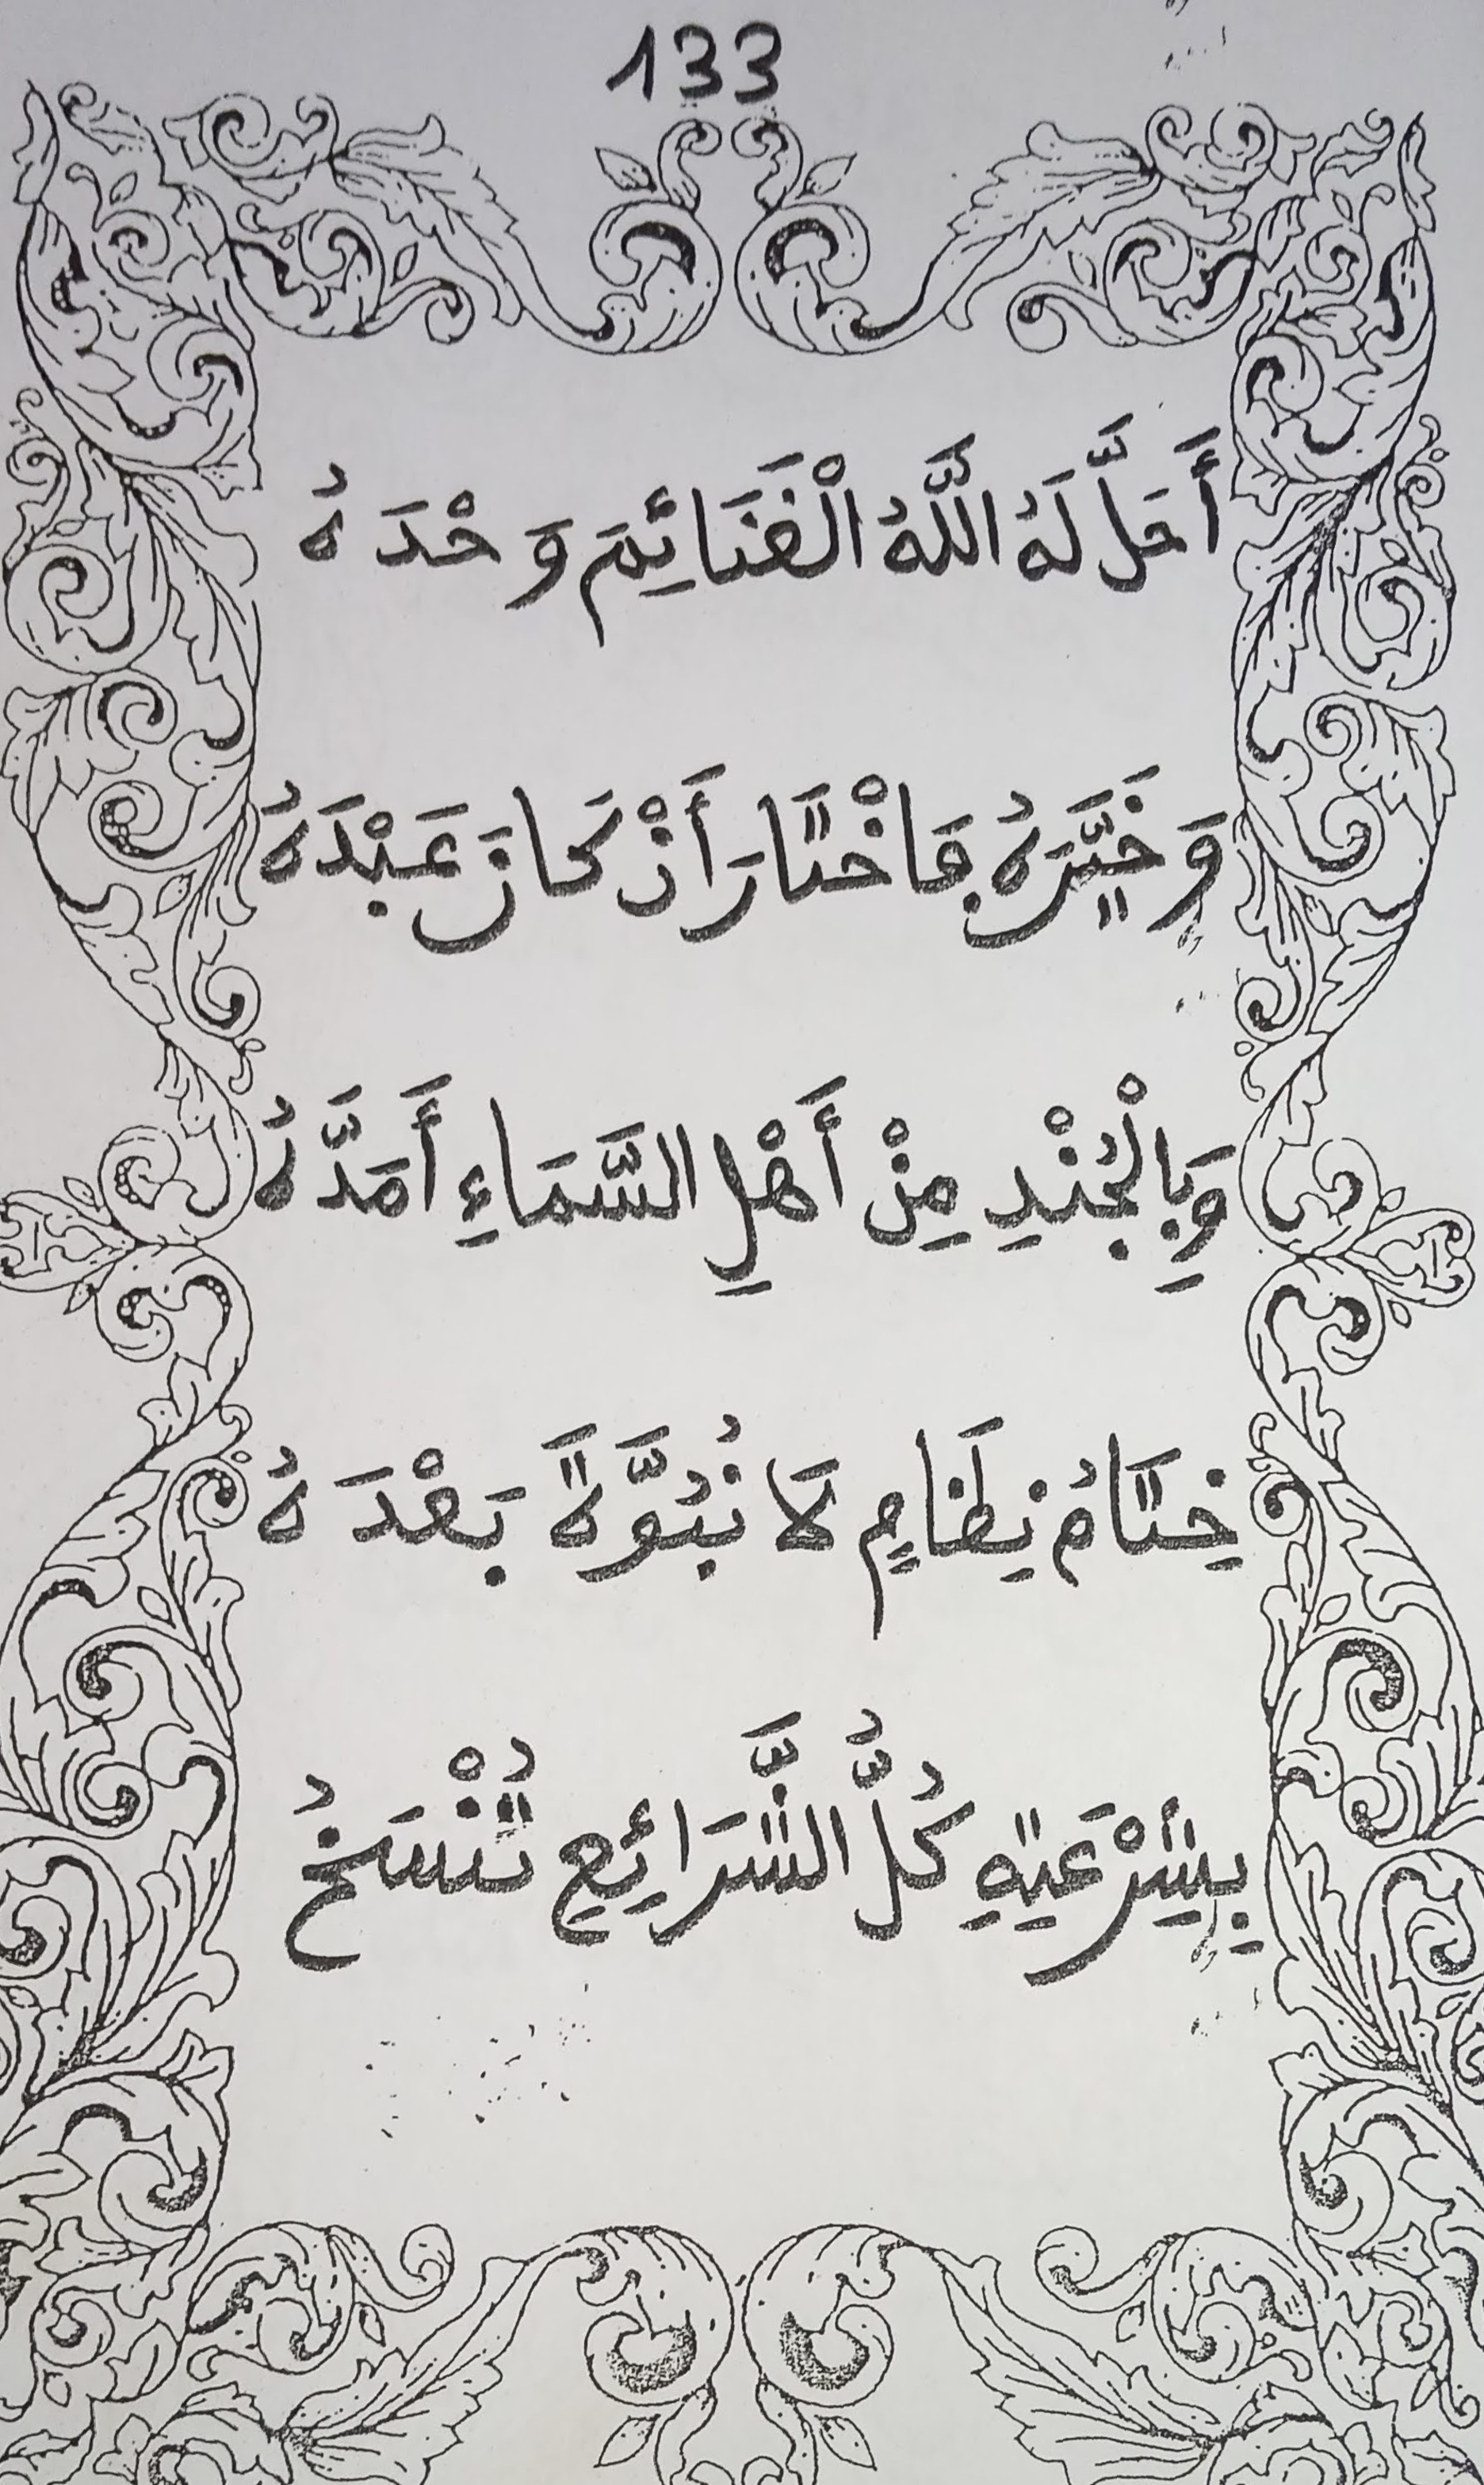 133
أَحَلَّ لَهُ اللَّهُ الْغَنَائِمَ وَحْدَهُ
وَخَيَّرَهُ فَاخْتَارَ أَنْ كَانَ عَبْدَهُ
وَبِالْجُنْدِ مِنْ أَهْلِ السَّمَاءِ أَمَدَّهُ
خِتَامُ نِظَامٍ لَا نُبُوَّةَ بَعْدَهُ
بِشِرْعَتِهِ كُلُّ الشَّرَائِعِ تُنْسَخُ